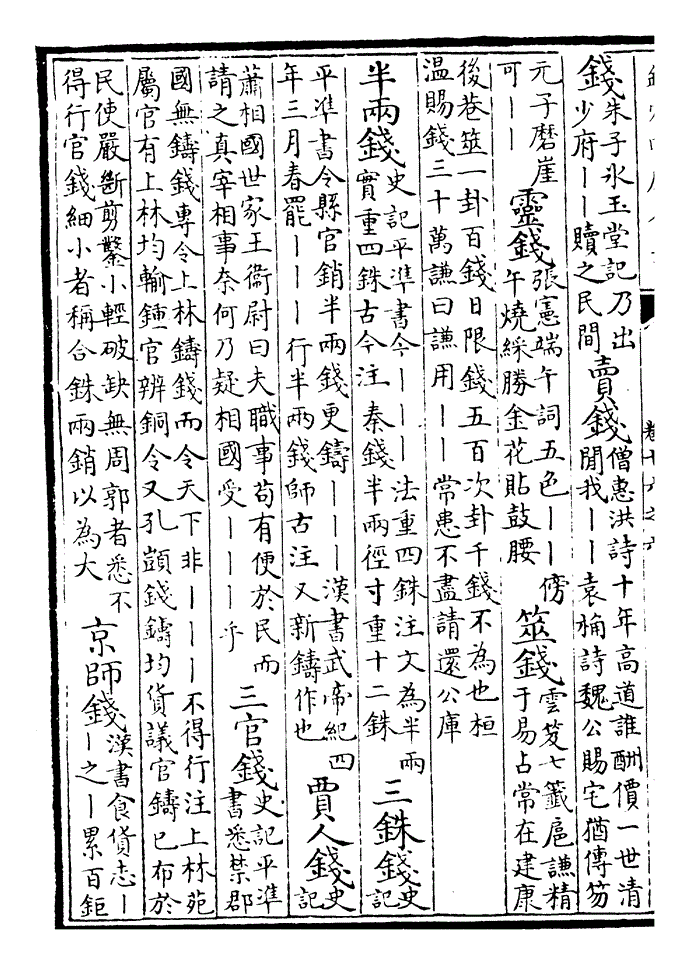 錢朱子氷玉堂記乃出
少府——贖之民間
賣錢僧惠洪詩十年高道誰酬價一世清
聞我——袁桷詩魏公賜宅猶傳笏
元子磨崖
可——
靈錢張憲端午詞五色——傍
午燒綵勝金花貼鼓腰
筮錢雲笈七籤扈謙精
于易占常在建康
後巷筮一卦百錢日限錢五百次卦千錢不為也桓
温賜錢三十萬謙曰謙用——常患不盡請還公庫
半兩錢史記平準書今———法重四銖注文為半兩
實重四銖古今注秦錢半兩徑寸重十二銖
三銖錢史
記
平準書令縣官銷半兩錢更鑄———漢書武帝紀四
年三月春罷———行半兩錢師古注又新鑄作也
賈人錢史
記
蕭相國世家王衞尉曰夫職事苟有便於民而
請之真宰相事奈何乃疑相國受———乎
三官錢史記平準
書悉禁郡
國無鑄錢專令上林鑄錢而令天下非———不得行注上林苑
屬官有上林均輸鍾官辨銅令又孔顗錢鑄均貨議官鑄已布於
民使嚴斷剪鑿小輕破缺無周郭者悉不
得行官錢細小者稱合銖兩銷以為大
京師錢漢書食貨志—
—之—累百鉅